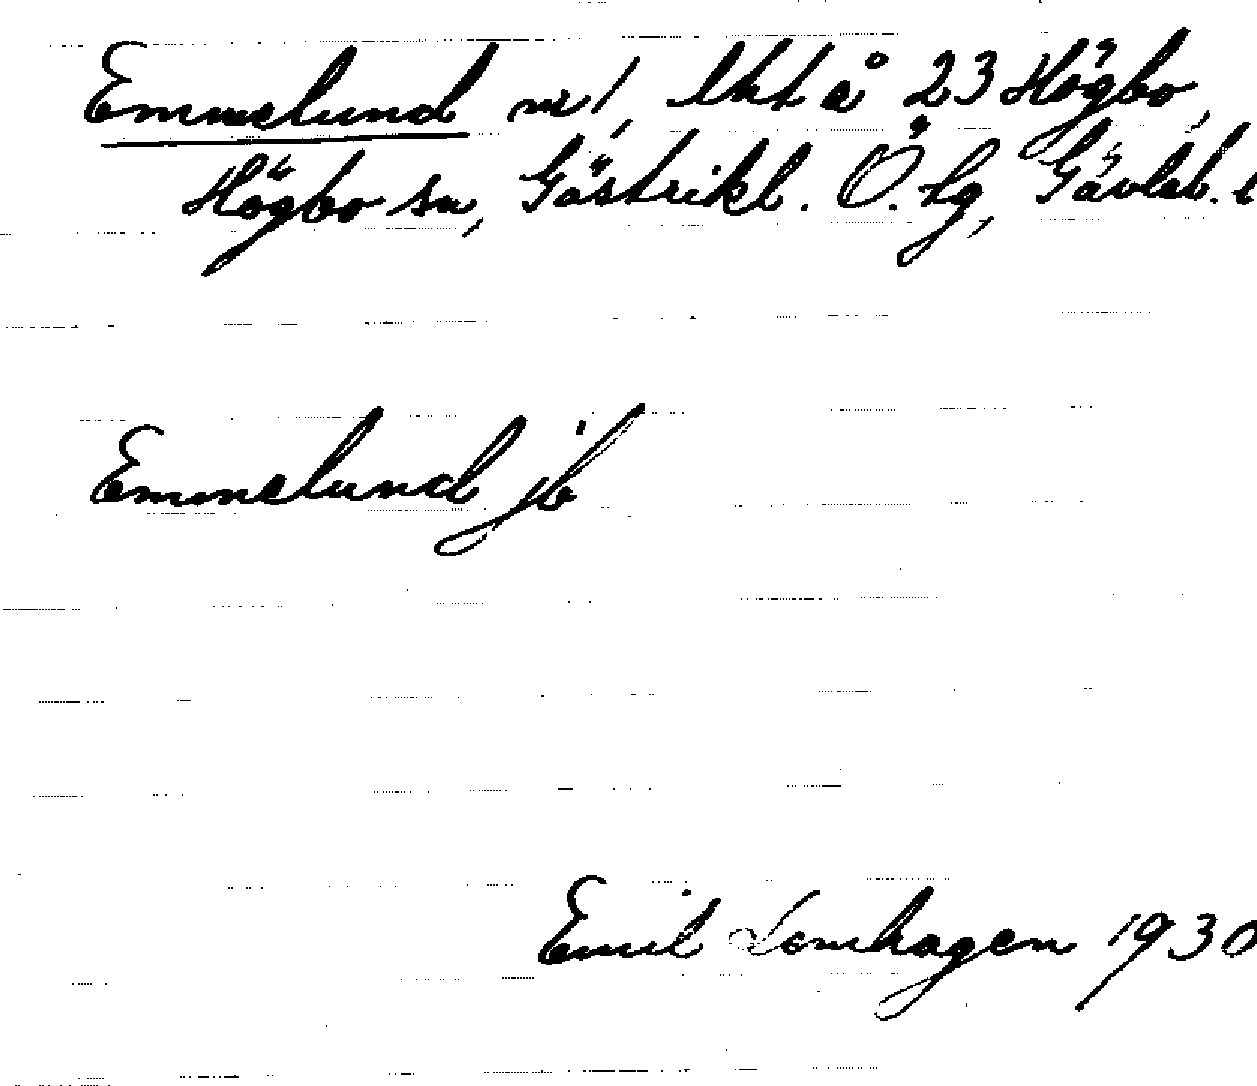 Emmelund nr 1, Ukt å 23 Högbo,
Högbo sn, Gästrikl. Ö. tg, Gävleb.
Emmelund jb
Emil Lomhagen 1930